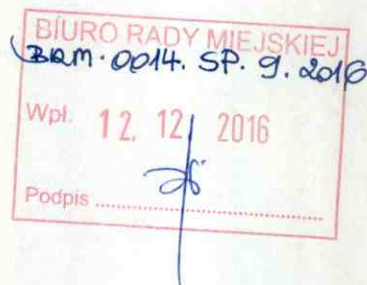 BIURO RADY MIEJSKIEJ
BRM.0014.SP.9.2016
Wpł. 12. 12 2016
Podpis ..............................